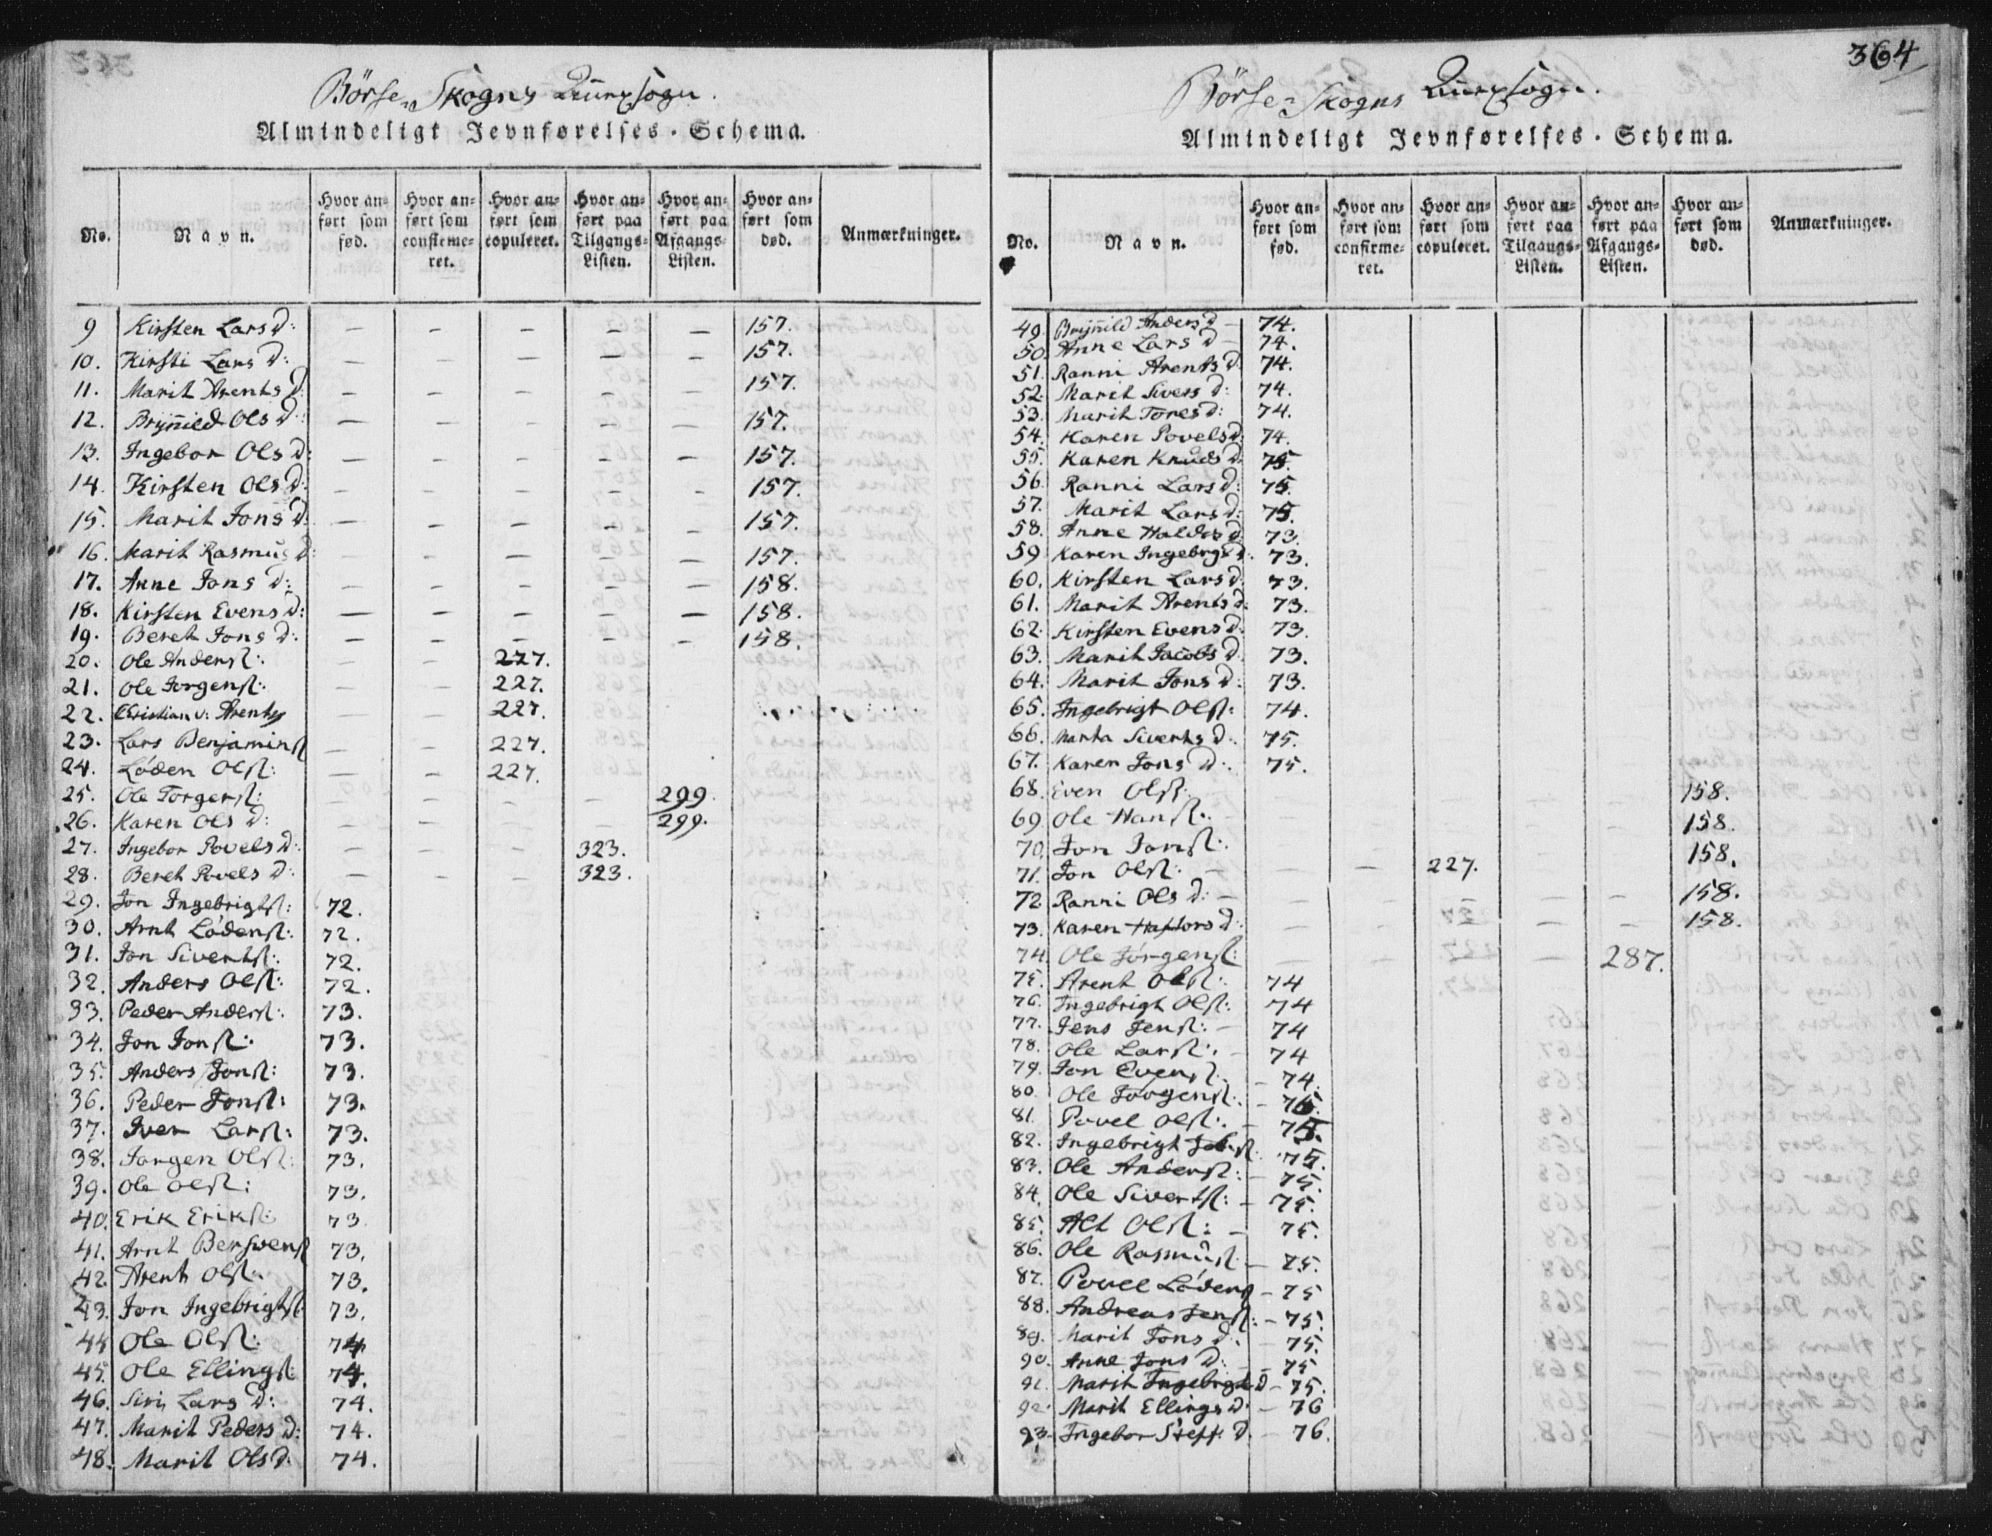 364
Börse-Skogns Annexsogn.
Almindeligt Jevnførelses-Schema.
No. Navn. Hvor anført som fød. Hvor anført som confirmeret. Hvor anført som copuleret. Hvor anført paa Tilgangs-Listen. Hvor anført paa Afgangs-Listen. Hvor anført som død. Anmærkninger.
9 Kirsten Lars d: — — — — — 157.
10. Kirsti Lars d: — — — — — 157.
11. Marit Arents d: — — — — — 157.
12. Brynild Ols d: — — — — — 157.
13. Ingebor Ols d: — — — — — 157.
14. Kirsten Ols d: — — — — — 157.
15. Marit Jons d: — — — — — 157.
16. Marit Rasmus d: — — — — — 157.
17. Anne Jons d: — — — — — 158.
18. Kirsten Evens d: — — — — — 158.
19. Beret Jons d: — — — — — 158.
20. Ole Anders: — — 227.
21. Ole Jorgens: — — 227.
22. Christian v: Arents — — 227.
23. Lars Benjamins — — 227.
24. Löden Ols: — — 227.
25. Ole Torgers: — — — — 299.
26. Karen Ols d: — — — — 299.
27. Ingebor Povels d: — — — 323.
28. Beret Povels d: — — — 323.
29. Jon Ingebrigts: 72.
30. Arnt Lödens: 72.
31. Jon Siverts: 72.
32. Anders Ols: 72.
33. Peder Anders: 73.
34. Jon Jons: 73.
35. Anders Jons: 73.
36. Peder Jons: 73.
37. Iver Lars: 73.
38. Jorgen Ols: 73.
39. Ole Ols: 73.
40. Erik Eriks: 73.
41. Arnt Berswens 73.
42. Arent Ols: 73.
43. Jon Ingebrigts 73.
44 Ole Ols: 74
45. Ole Ellings: 74.
46. Siri Lars d: 74.
47. Marit Peders d: 74.
48. Marit Ols d. 74.
Börse-Skogns Annexsogn.
Almindeligt Jevnførelses-Schema.
No. Navn. Hvor anført som fød. Hvor anført som confirmeret. Hvor anført som copuleret. Hvor anført paa Tilgangs-Listen. Hvor anført paa Afgangs-Listen. Hvor anført som død. Anmærkninger.
49. Brynild Anders d — 74.
50. Anne Lars d — 74.
51. Ranni Arents d: 74.
52. Marit Sivers d: 74.
53. Marit Tores d: 74.
54. Karen Povels d: 74.
55. Karen Knuds d: 75.
56. Ranni Lars d: 75.
57. Marit Lars d: 75.
58. Anne Haldos d 73.
59 Karen Ingebrgs d. 73.
60. Kirsten Lars d: 73.
61. Marit Arents d: 73.
62. Kirsten Evens d: 73.
63. Marit Jacobs d: 73.
64. Marit Jons d: 73.
65. Ingebrigt Ols: 74.
66. Marta Siverts d: 75.
67. Karen Jons d: 75.
68. Even Ols: — — — — — 158.
69. Ole Hans: — — — — — 158.
70. Jon Jons: 158.
71. Jon Ols: — — — 227.
72 Ranni Ols d: — — — — — — 158.
73. Karen d: — — — — — 158.
74. Ole Jörgens: — — — — 287.
75. Arent Ols: 74
76. Ingebrigt Ols: 74
77. Jens Jens: — 74
78. Ole Lars: — 74
79. Jon Evens: — 74.
80. Ole Jorgens: — 75.
81. Povel Ols: — 75.
82. Ingebrigt 75.
83. Ole Anders: — 75.
84. Ole Siverts: — 75.
85. Alt Ols: — 75.
86. Ole Rasmus: — 75.
87. Povel Lödens — 75
88. Andreas Jens: — 75.
89. Marit Jons d: — 75.
90. Anne Jons d: — 75
91. Marit Ingebrigts d — 75.
92. Marit Ellings d: — 76
93. Ingebor Steff. d. — 76.